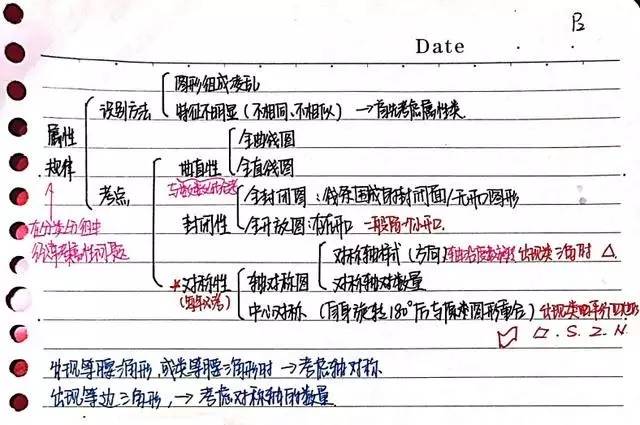 P2
Date
图形组成凌乱
识别方法
特征不明显(不相同、不相似) → 首先考虑属性类
属性
规律
全曲线图
曲直性
全直线图
考点
全封闭图:线条围成的封闭面/无开口图形
封闭性
全开放图:有开口 一般留一个小开口.
在分类分组中
对称轴样式(方向) 出现类三角时 △
*对称性
轴对称图
对称轴对数量
中心对称(自身旋转180°后与原来图形重合)
S.Z.N.
出现等腰三角形,或类等腰三角形时 → 考虑轴对称
出现等边三角形, → 考虑对称轴的数量